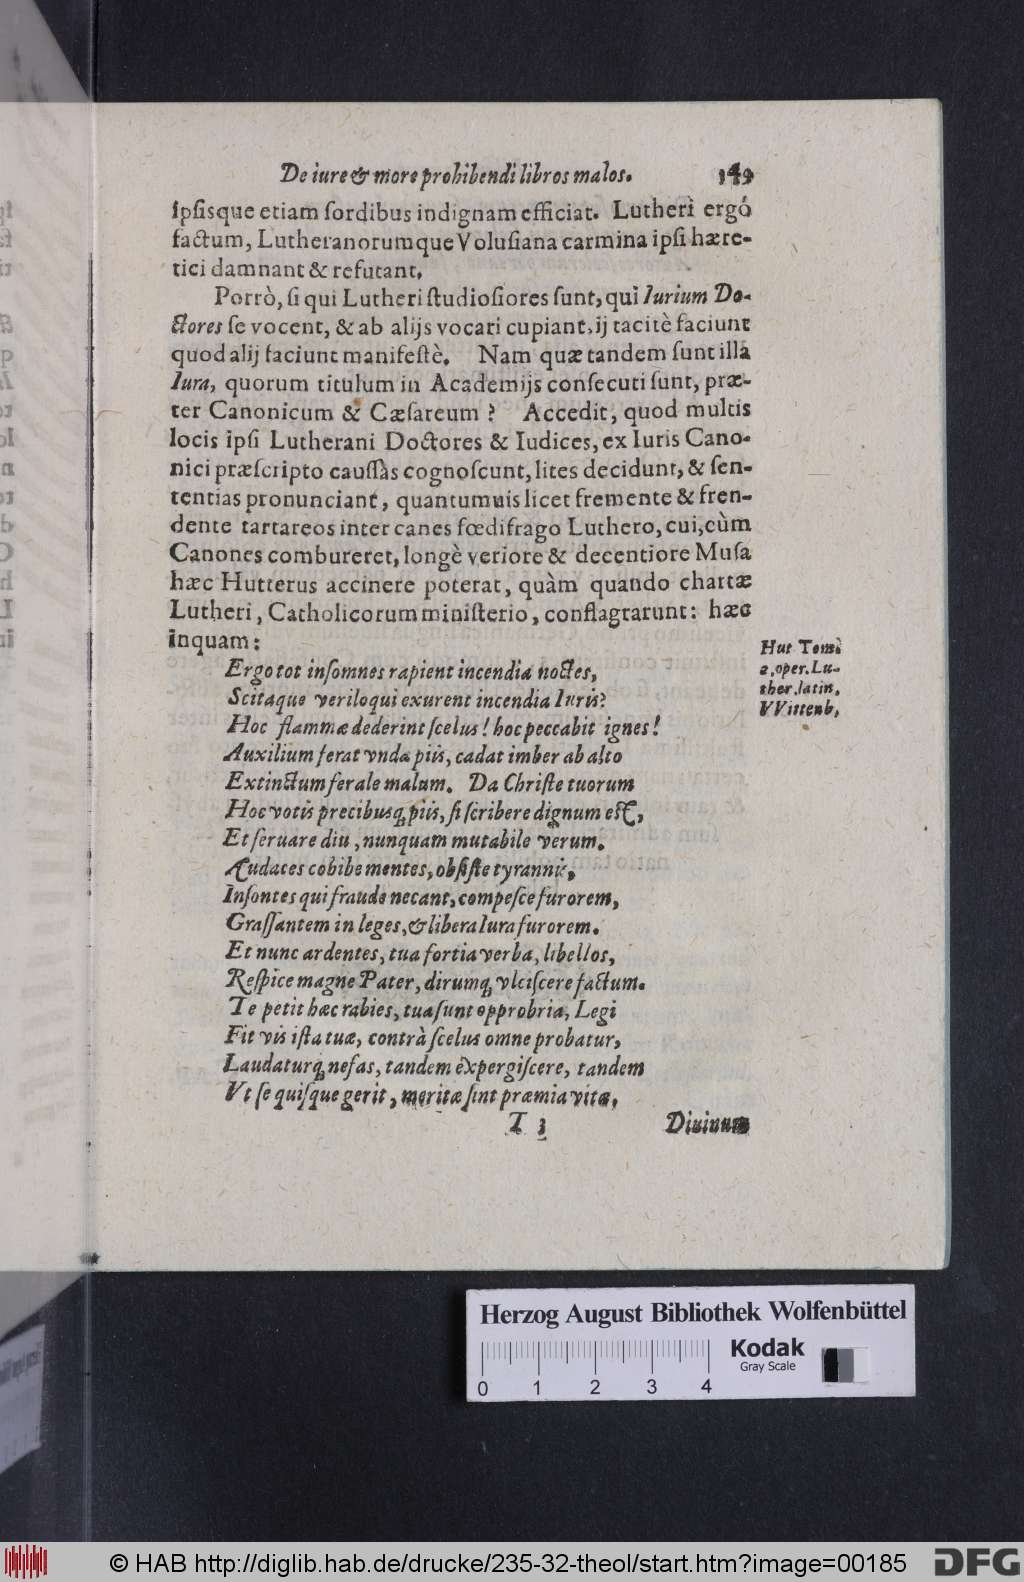 De iure & more prohibendi libros malos. 149
ipsisque etiam sordibus indignam efficiat. Lutheri ergó
factum, Lutheranorumque Volusiana carmina ipsi hære-
tici damnant & refutant.
Porrò, si qui Lutheri studiosiores sunt, qui Iurium Do-
ctores se vocent, & ab alijs vocari cupiant, ij tacitè faciunt
quod alij faciunt manifestè. Nam quæ tandem sunt illa
Iura, quorum titulum in Academijs consecuti sunt, præ-
ter Canonicum & Cæsareum? Accedit, quod multis
locis ipsi Lutherani Doctores & Iudices, ex Iuris Cano-
nici præscripto caussàs cognoscunt, lites decidunt, & sen-
tentias pronunciant, quantumuis licet fremente & fren-
dente tartareos inter canes fœdifrago Luthero, cui, cùm
Canones combureret, longè veriore & decentiore Musa
hæc Hutterus accinere poterat, quàm quando chartæ
Lutheri, Catholicorum ministerio, conflagrarunt: hæc
inquam:
Hut Tomi
2. oper. Lu-
ther. latin.
VVittenb,
Ergo tot insomnes rapient incendia noctes,
Scitaque veriloqui exurent incendia Iuris?
Hoc flammæ dederint scelus! hoc peccabit ignes!
Auxilium ferat vnda piis, cadat imber ab alto
Extinctum ferale malum. Da Christe tuorum
Hoc votis precibusq; piis, si scribere dignum est,
Et seruare diu, nunquam mutabile verum.
Audaces cohibe mentes, obsiste tyrannis,
Insontes qui fraude necant, compesce furorem,
Grassantem in leges, & libera Iura furorem.
Et nunc ardentes, tua fortia verba, libellos,
Respice magne Pater, dirumq; vlciscere factum.
Te petit hæc rabies, tua sunt opprobria, Legi
Fit vis ista tuæ, contrà scelus omne probatur,
Laudaturq; nefas, tandem èxpergiscere, tandem
Vt se quisque gerit, meritæ sint præmia vitæ,
T 3 Diuinum
Herzog August Bibliothek Wolfenbüttel
Kodak
Gray Scale
0 1 2 3 4
© HAB http://diglib.hab.de/drucke/235-32-theol/start.htm?image=00185
DFG